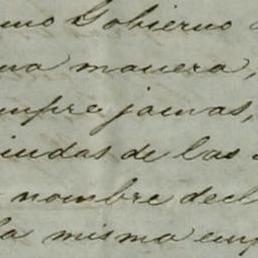 mo Gobierno
na manera,
mpre jamas,
iudas de las
nombre decl
la misma emp